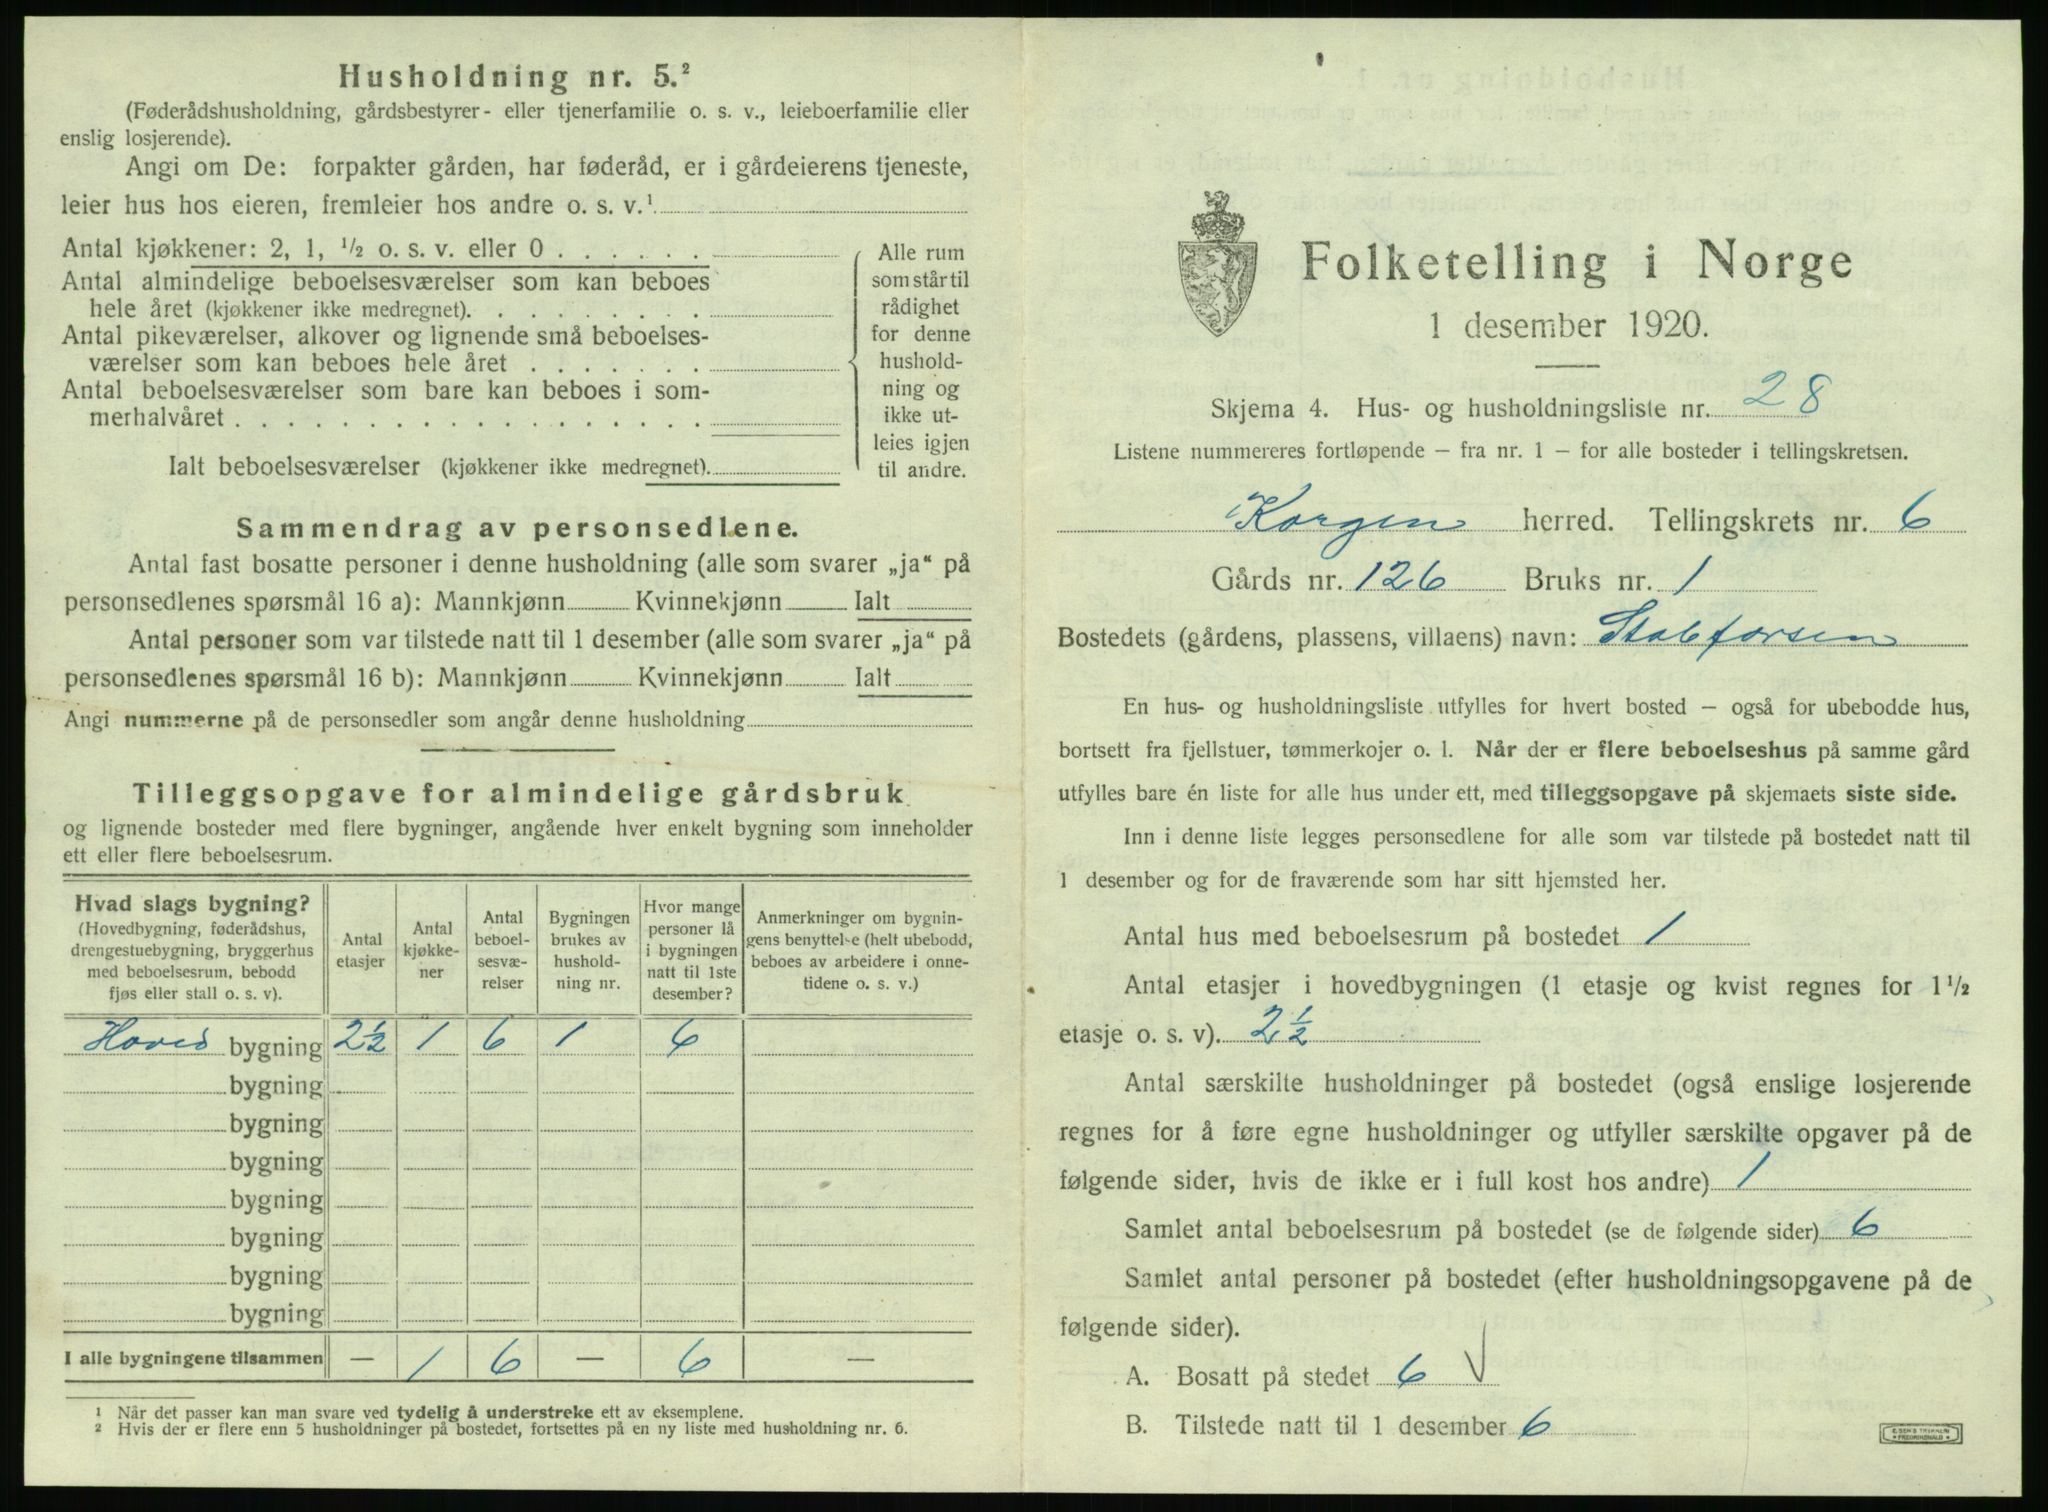 Husholdning nr. 5.²
(Føderådshusholdning, gårdsbestyrer- eller tjenerfamilie o. s. v., leieboerfamilie eller
enslig losjerende).
Angi om De: forpakter gården, har føderåd, er i gårdeierens tjeneste,
leier hus hos eieren, fremleier hos andre o. s. v.¹
Antal kjøkkener: 2, 1, ½ o. s. v. eller 0 . . . . . .
Antal almindelige beboelsesværelser som kan beboes
hele året (kjøkkener ikke medregnet). . . . . . . . .
Antal pikeværelser, alkover og lignende små beboelses-
værelser som kan beboes hele året . . . . . . .
Antal beboelsesværelser som bare kan beboes i som-
merhalvåret . . . . . . . . . . . . . . . . . .
Ialt beboelsesværelser (kjøkkener ikke medregnet).
Alle rum
som står til
rådighet
for denne
hushold-
ning og
ikke ut-
leies igjen
til andre.
Sammendrag av personsedlene.
Antal fast bosatte personer i denne husholdning (alle som svarer „ja“ på
personsedlenes spørsmål 16 a): Mannkjønn Kvinnekjønn Ialt
Antal personer som var tilstede natt til 1 desember (alle som svarer „ja“ på
personsedlenes spørsmål 16 b): Mannkjønn Kvinnekjønn Ialt
Angi nummerne på de personsedler som angår denne husholdning
Tilleggsopgave for almindelige gårdsbruk
og lignende bosteder med flere bygninger, angående hver enkelt bygning som inneholder
ett eller flere beboelsesrum.
Hvad slags bygning?
(Hovedbygning, føderådshus,
drengestuebygning, bryggerhus
med beboelsesrum, bebodd
fjøs eller stall o. s. v).
Antal
etasjer
Antal
kjøkke-
ner
Antal
beboel-
sesvæ-
relser
Bygningen
brukes av
hushold-
ning nr.
Hvor mange
personer lå
i bygningen
natt til 1ste
desember?
Anmerkninger om bygnin-
gens benyttelse (helt ubebodd,
beboes av arbeidere i onne-
tidene o. s. v.)
Hoved bygning 2½ 1 6 1 6
bygning
bygning
bygning
bygning
bygning
bygning
bygning
I alle bygningene tilsammen — 1 6 — 6 —
¹ Når det passer kan man svare ved tydelig å understreke ett av eksemplene.
² Hvis der er flere enn 5 husholdninger på bostedet, fortsettes på en ny liste med husholdning nr. 6.
Folketelling i Norge
1 desember 1920.
Skjema 4. Hus- og husholdningsliste nr. 28
Listene nummereres fortløpende – fra nr. 1 – for alle bosteder i tellingskretsen.
Korgen herred. Tellingskrets nr. 6
Gårds nr. 126 Bruks nr. 1
Bostedets (gårdens, plassens, villaens) navn: Stabforsen
En hus- og husholdningsliste utfylles for hvert bosted – også for ubebodde hus,
bortsett fra fjellstuer, tømmerkojer o. l. Når der er flere beboelseshus på samme gård
utfylles bare én liste for alle hus under ett, med tilleggsopgave på skjemaets siste side.
Inn i denne liste legges personsedlene for alle som var tilstede på bostedet natt til
1 desember og for de fraværende som har sitt hjemsted her.
Antal hus med beboelsesrum på bostedet 1
Antal etasjer i hovedbygningen (1 etasje og kvist regnes for 1½
etasje o. s. v). 2½
Antal særskilte husholdninger på bostedet (også enslige losjerende
regnes for å føre egne husholdninger og utfyller særskilte opgaver på de
følgende sider, hvis de ikke er i full kost hos andre) 1
Samlet antal beboelsesrum på bostedet (se de følgende sider) 6
Samlet antal personer på bostedet (efter husholdningsopgavene på de
følgende sider).
A. Bosatt på stedet 6 √
B. Tilstede natt til 1 desember 6